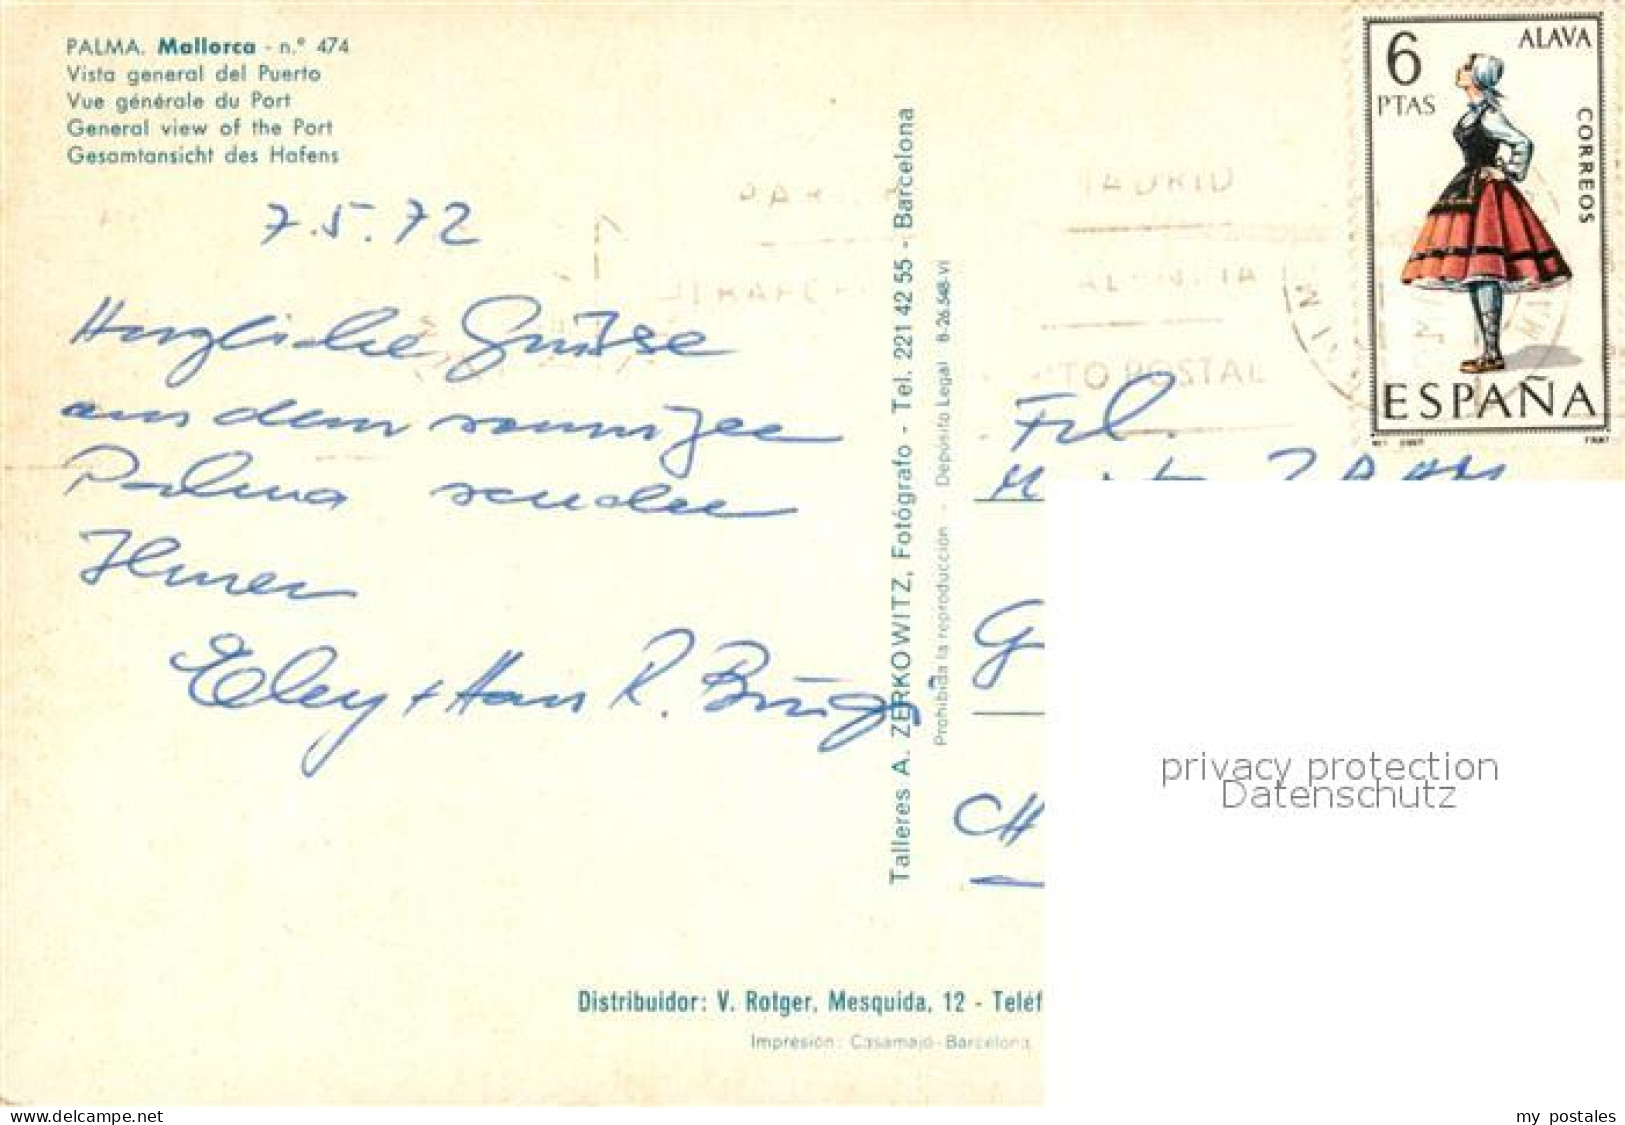 PALMA. Mallorca - n.º 474
Vista general del Puerto
Vue générale du Port
General view of the Port
Gesamtansicht des Hafens
7.5.72
Herzliche Grüsse
aus dem sonnigen
Palma senden
Ihnen
Elly + Hans R. Bürgi
Talleres A. ZERKOWITZ, Fotógrafo - Tel. 221 42 55 - Barcelona
Prohibida la reproducción - Depósito Legal B-26.548-VI
6
PTAS
ALAVA
CORREOS
ESPAÑA
MADRID
TO POSTAL
Frl.
ZAHN
G
CH
privacy protection
Datenschutz
Distribuidor: V. Rotger, Mesquida, 12 - Teléf
Impresión: Casamajó-Barcelona
www.delcampe.net
my_postales